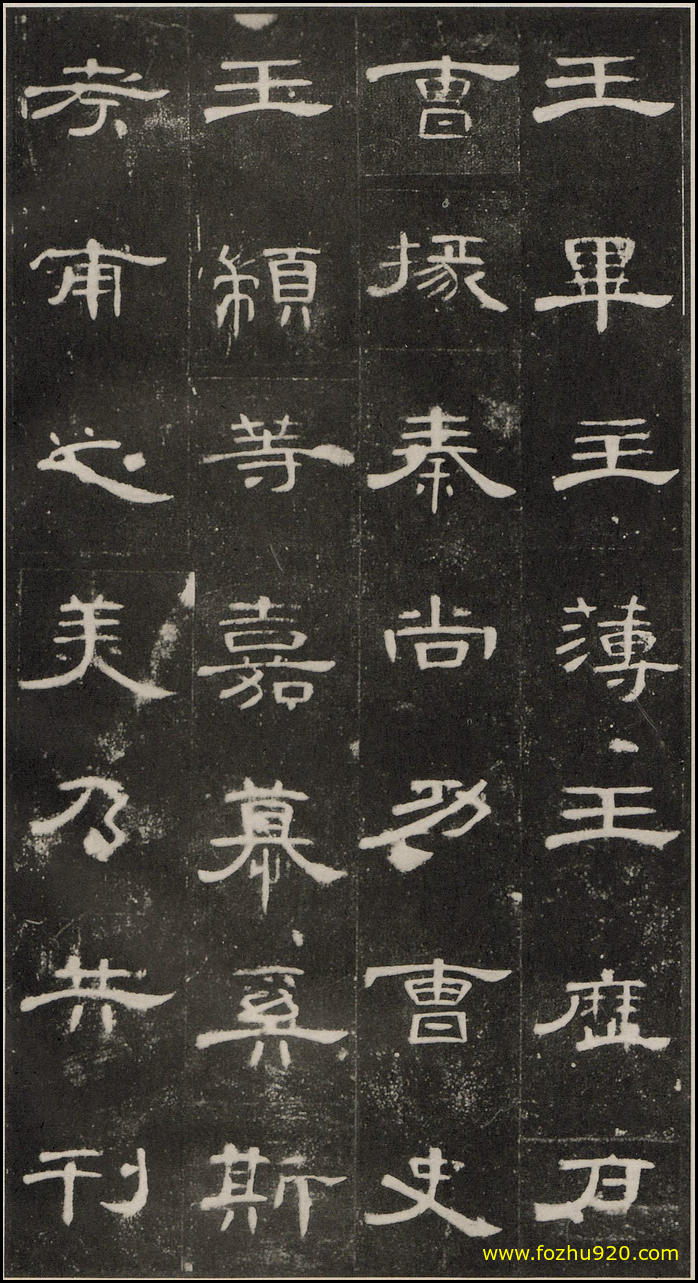 王畢主薄王歷戶
曹掾秦尚功曹史
王顓等嘉慕奚斯
考甫之美乃共刊
www.fozhu920.com